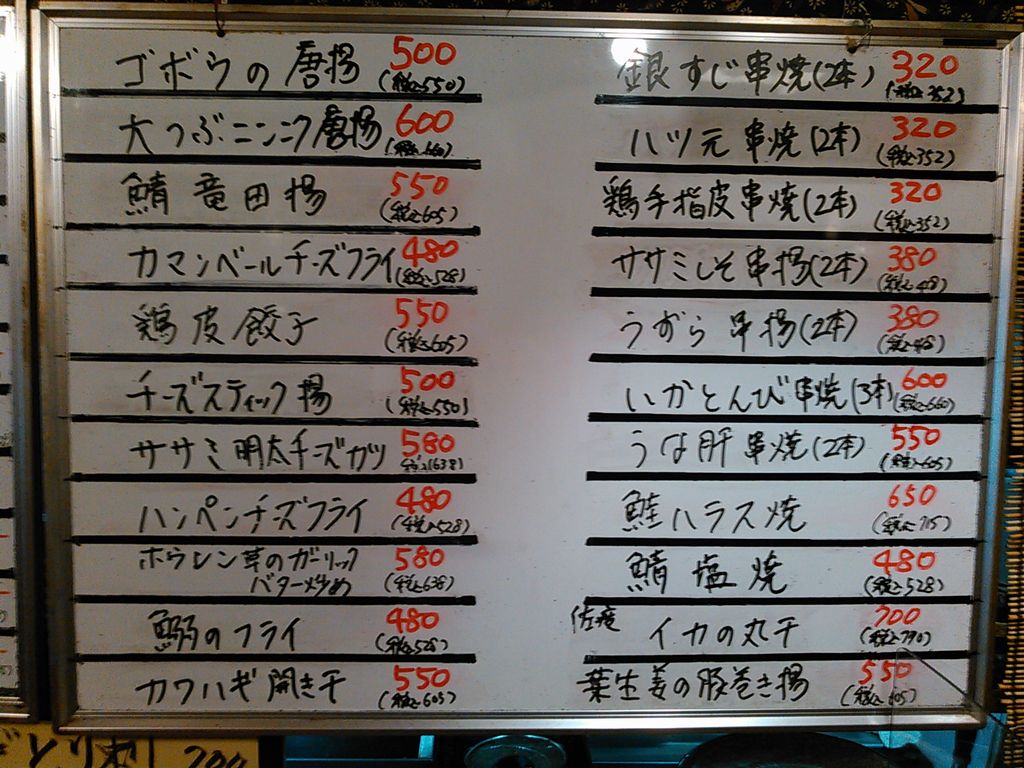 ゴボウの唐揚 500 (税込550)
大つぶニンニク唐揚 600 (税込660)
鯖竜田揚 550 (税込605)
カマンベールチーズフライ 480 (税込528)
鶏皮餃子 550 (税込605)
チーズスティック揚 500 (税込550)
ササミ明太チーズカツ 580 (税込638)
ハンペンチーズフライ 480 (税込528)
ホウレン草のガーリック
バター炒め 580 (税込638)
鰯のフライ 480 (税込528)
カワハギ開き干 550 (税込605)
銀すじ串焼(2本) 320 (税込352)
ハツ元串焼(2本) 320 (税込352)
鶏手指皮串焼(2本) 320 (税込352)
ササミしそ串揚(2本) 380 (税込418)
うずら串揚(2本) 380 (税込418)
いかとんび串焼(3本) 600 (税込660)
うな肝串焼(2本) 550 (税込605)
鮭ハラス焼 650 (税込715)
鯖塩焼 480 (税込528)
佐渡 イカの丸干 700 (税込790)
葉生姜の豚巻き揚 550 (税込605)